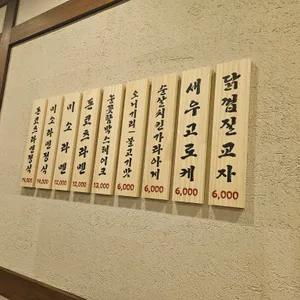 돈코츠라멘정식
14,000
미소라멘정식
14,000
미소라멘
12,000
돈코츠라멘
12,000
눈꽃함박스테이크
13,000
오니기리-불고기맛
6,000
순살치킨가라아게
6,000
새우고로케
6,000
닭껍질교자
6,000